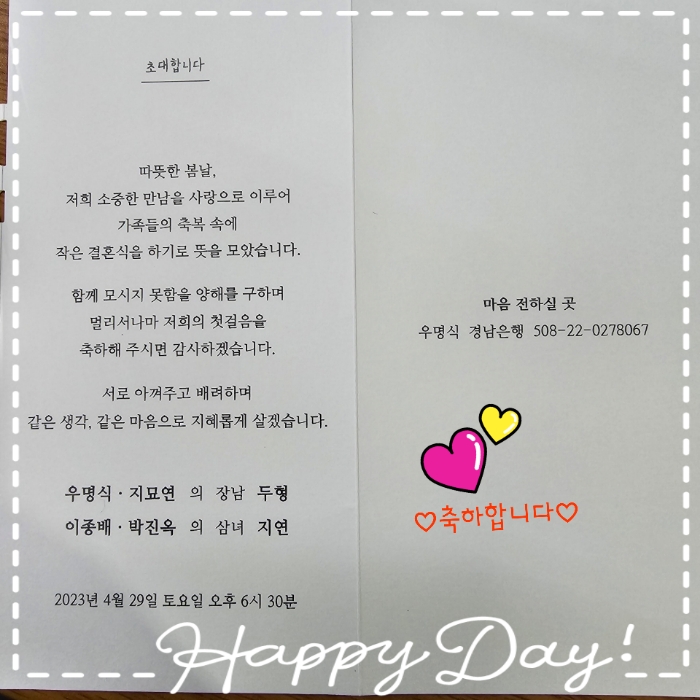 초대합니다
따뜻한 봄날,
저희 소중한 만남을 사랑으로 이루어
가족들의 축복 속에
작은 결혼식을 하기로 뜻을 모았습니다.
함께 모시지 못함을 양해를 구하며
멀리서나마 저희의 첫걸음을
축하해 주시면 감사하겠습니다.
서로 아껴주고 배려하며
같은 생각, 같은 마음으로 지혜롭게 살겠습니다.
우명식 · 지묘연 의 장남 두형
이종배 · 박진옥 의 삼녀 지연
2023년 4월 29일 토요일 오후 6시 30분
마음 전하실 곳
우명식 경남은행 508-22-0278067
♡축하합니다♡
Happy Day!